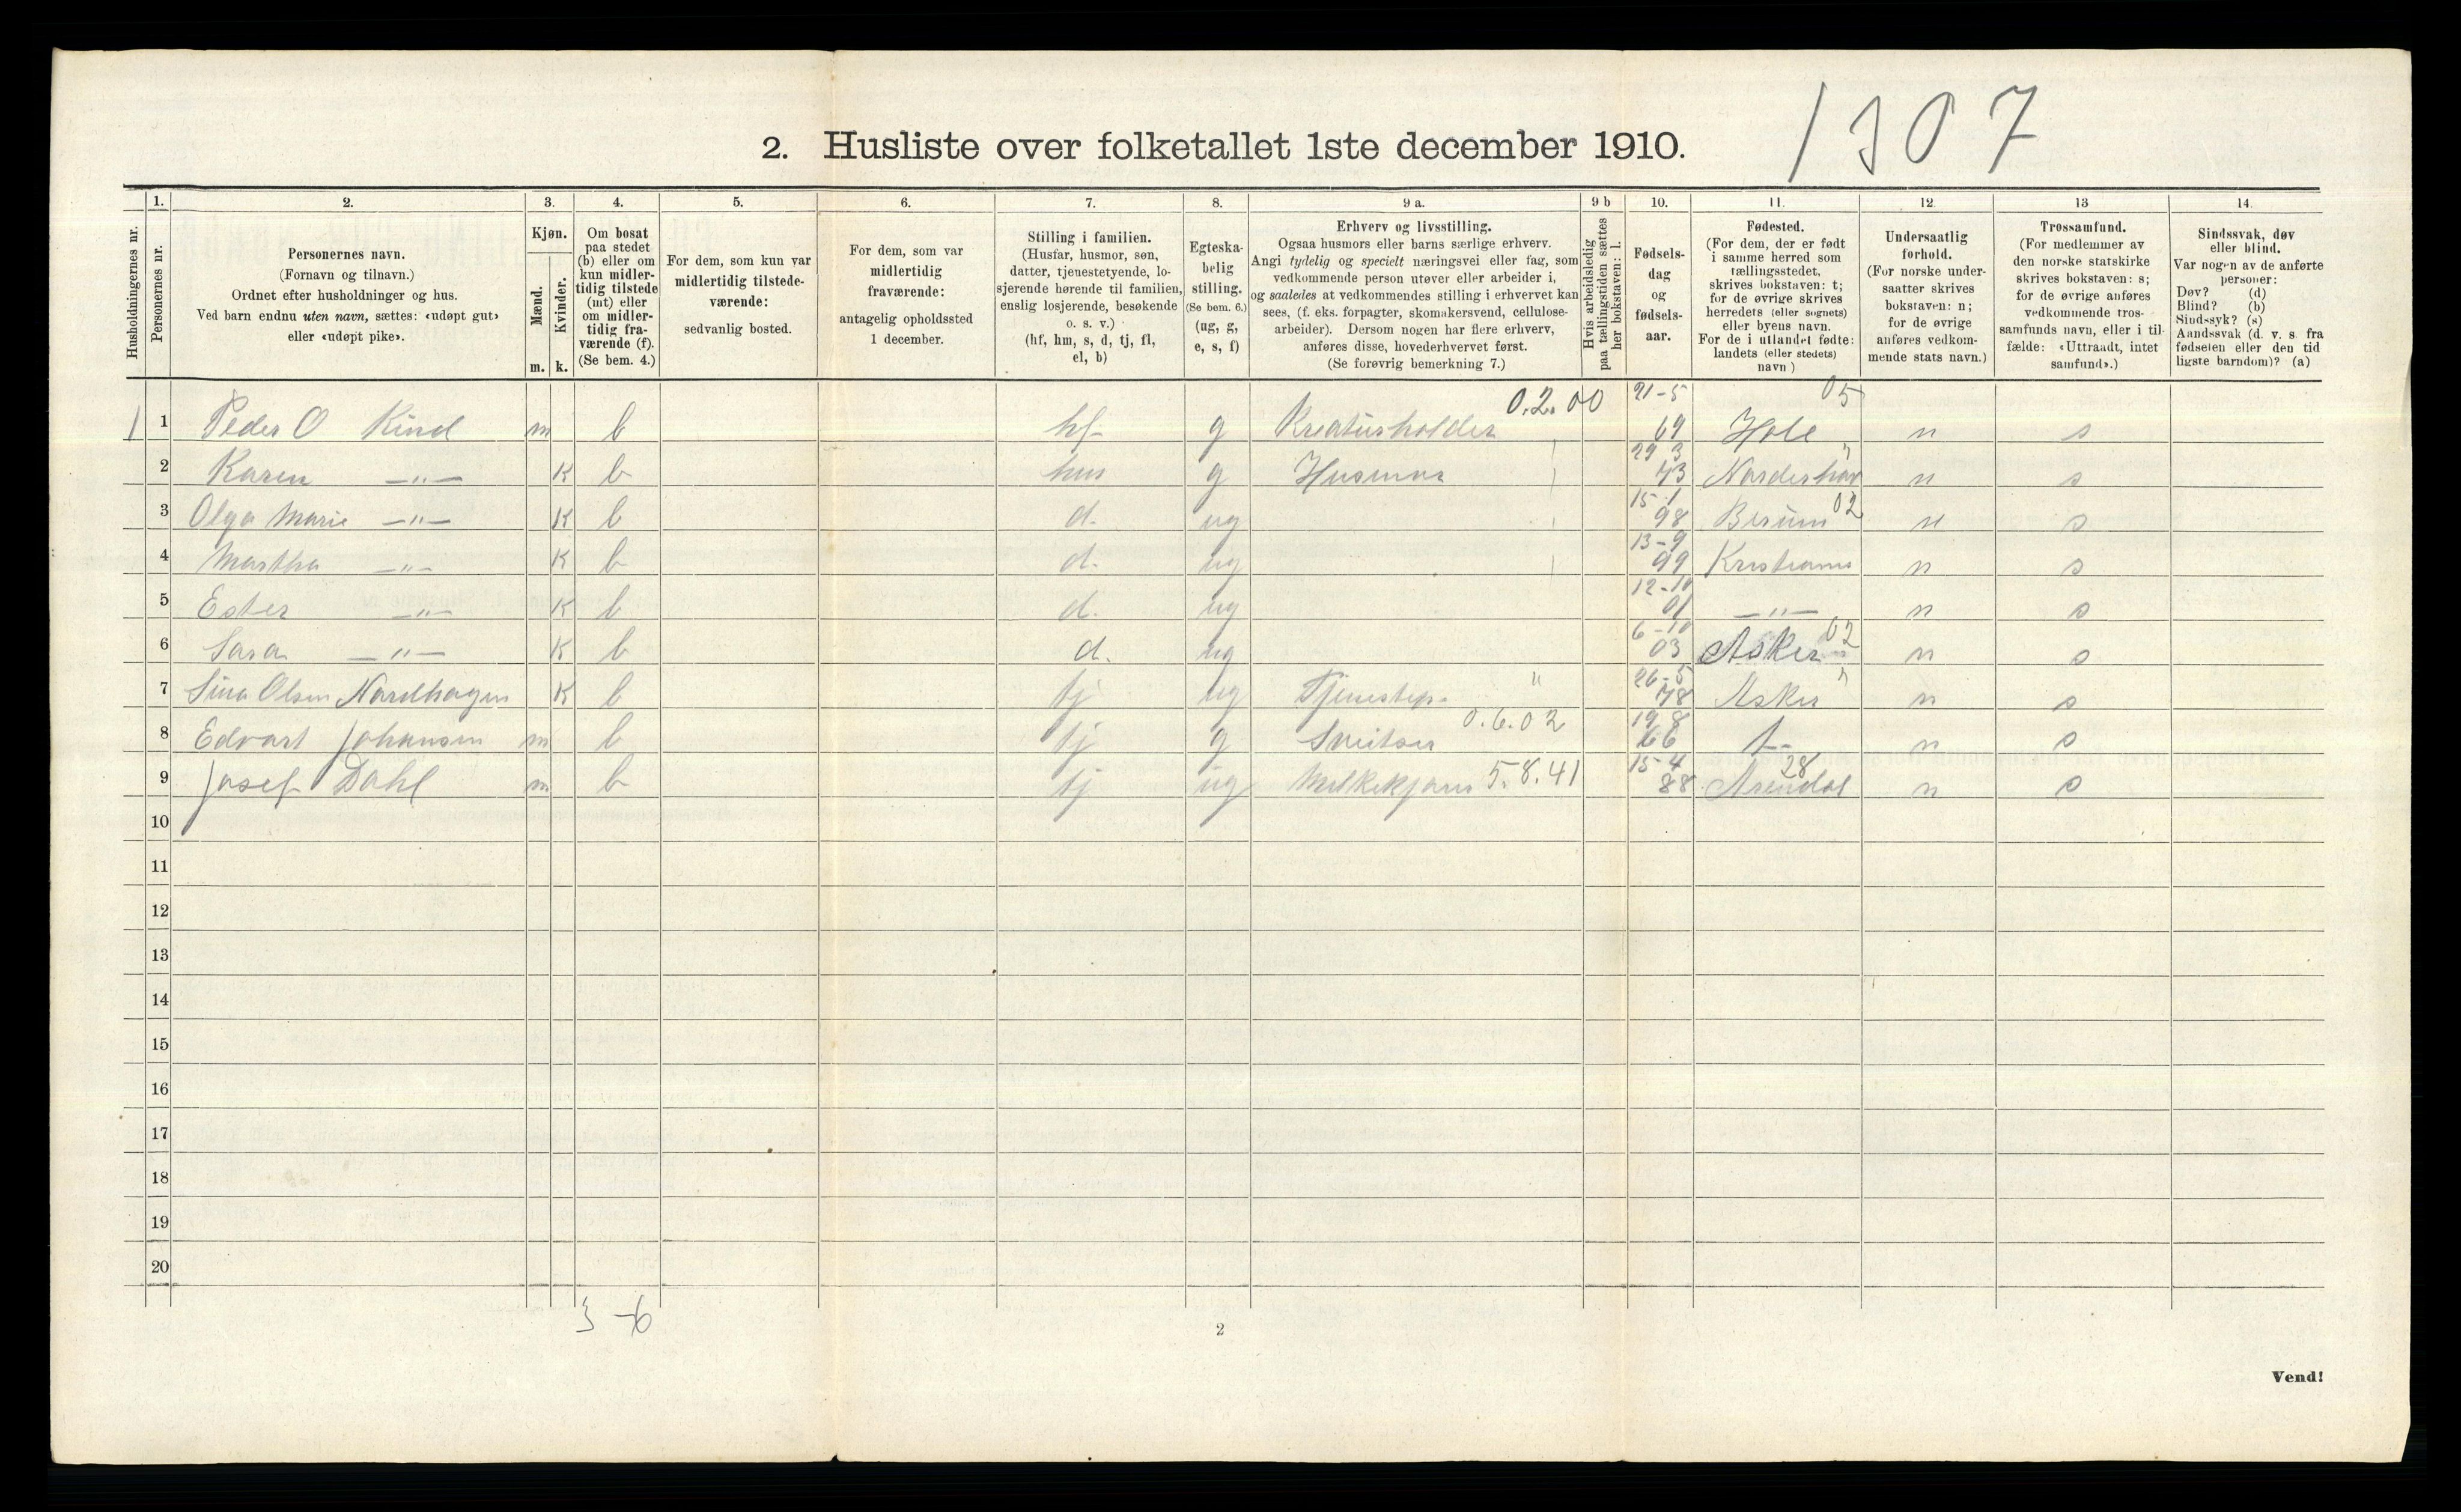 1307
2. Husliste over folketallet 1ste december 1910.
Husholdningernes nr.
1.
Personernes nr.
2.
Personernes navn.
(Fornavn og tilnavn.)
Ordnet efter husholdninger og hus.
Ved barn endnu uten navn, sættes: «udøpt gut»
eller «udøpt pike».
3.
Kjøn.
Mænd.
Kvinder.
m. k.
4.
Om bosat
paa stedet
(b) eller om
kun midler-
tidig tilstede
(mt) eller
om midler-
tidig fra-
værende (f).
(Se bem. 4.)
5.
For dem, som kun var
midlertidig tilstede-
værende:
sedvanlig bosted.
6.
For dem, som var
midlertidig
fraværende:
antagelig opholdssted
1 december.
7.
Stilling i familien.
(Husfar, husmor, søn,
datter, tjenestetyende, lo-
sjerende hørende til familien,
enslig losjerende, besøkende
o. s. v.)
(hf, hm, s, d, tj, fl,
el, b)
8.
Egteska-
belig
stilling.
(Se bem. 6.)
(ug, g,
e, s, f)
9 a.
Erhverv og livsstilling.
Ogsaa husmors eller barns særlige erhverv.
Angi tydelig og specielt næringsvei eller fag, som
vedkommende person utøver eller arbeider i,
og saaledes at vedkommendes stilling i erhvervet kan
sees, (f. eks. forpagter, skomakersvend, cellulose-
arbeider). Dersom nogen har flere erhverv,
anføres disse, hovederhvervet først.
(Se forøvrig bemerkning 7.)
9 b
Hvis arbeidsledig
paa tællingstiden sættes
her bokstaven: l.
10.
Fødsels-
dag
og
fødsels-
aar.
11.
Fødested.
(For dem, der er født
i samme herred som
tællingsstedet,
skrives bokstaven: t;
for de øvrige skrives
herredets (eller sognets)
eller byens navn.
For de i utlandet fødte:
landets (eller stedets)
navn)
12.
Undersaatlig
forhold.
(For norske under-
saatter skrives
bokstaven: n;
for de øvrige
anføres vedkom-
mende stats navn.)
13
Trossamfund.
(For medlemmer av
den norske statskirke
skrives bokstaven: s;
for de øvrige anføres
vedkommende tros-
samfunds navn, eller i til-
fælde: «Uttraadt, intet
samfund».)
14.
Sindssvak, døv
eller blind.
Var nogen av de anførte
personer:
Døv? (d)
Blind? (b)
Sindssyk? (s)
Aandssvak (d. v. s. fra
fødselen eller den tid
ligste barndom)? (a)
1 1 Peder O Kind m b hf g Kreaturholder 0.2.00 21-5 69 Hole 05 n s
2 Karen —"— K b hm g Husmor 29 3 73 Norderhov " n s
3 Olga Marie —"— K b d. ug 15-1 98 Berum 02 n s
4 Martha —"— K b d. ug 13-9 99 Kristiania n s
5 Ester —"— K b d. ug 12-10 01 —"— n s
6 Sara —"— K b d. ug 6-10 03 Asker 02 n s
7 Sina Olsen Nordhagen K b tj ug Tjenestep. " 26-5 78 Asker " n s
8 Edvart Johansen m b tj g Sveitser 0.6.02 19 8 66 t. n s
9 Josef Dahl m b tj ug Melkekjører 5.8.41 15-4 88 Arendal 28 n s
10
11
12
13
14
15
16
17
18
19
20
3 - 6
2
Vend!